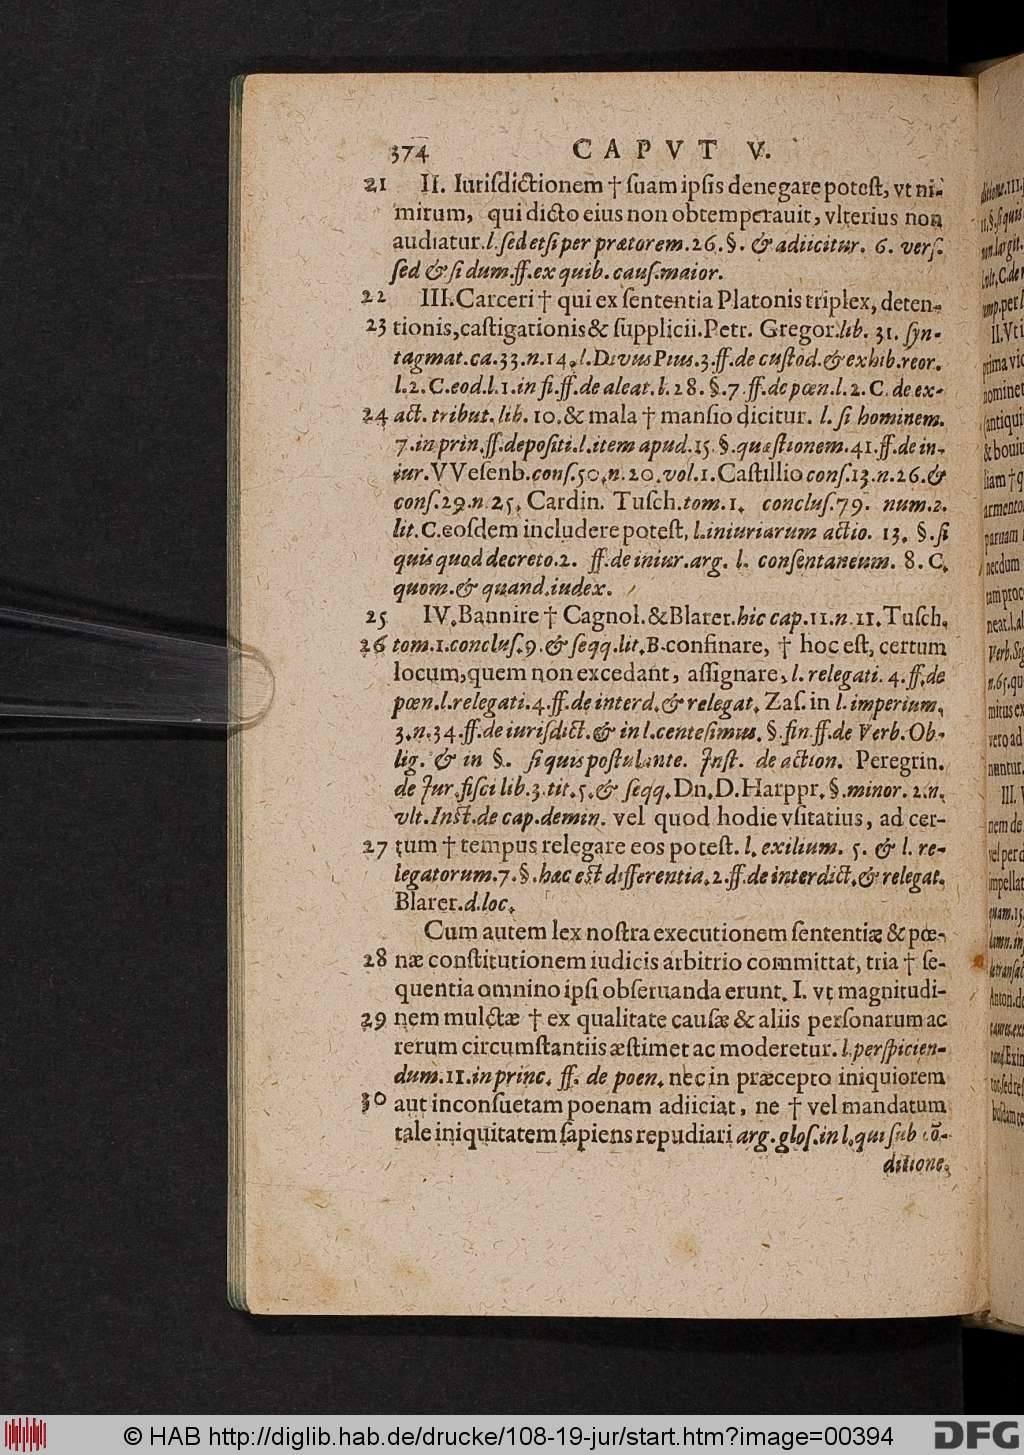 374 CAPVT V.
21 II. Iurisdictionem † suam ipsis denegare potest, vt ni-
mirum, qui dicto eius non obtemperauit, vlterius non
audiatur. l. sed etsi per prætorem. 26. §. & adiicitur. 6. vers.
sed & si dum. ff. ex quib. caus. maior.
22 III. Carceri † qui ex sententia Platonis triplex, deten-
23 tionis, castigationis & supplicii. Petr. Gregor. lib. 31. syn-
tagmat. ca. 33. n. 14. l. Divus Pius. 3. ff. de custod. & exhib. reor.
l. 2. C. eod. l. 1. in fi. ff. de aleat. l. 28. §. 7. ff. de pœn. l. 2. C. de ex-
24 act. tribut. lib. 10. & mala † mansio dicitur. l. si hominem.
7. in prin. ff. depositi. l. item apud. 15. §. quæstionem. 41. ff. de in-
iur. VVesenb. cons. 50. n. 20. vol. 1. Castillio cons. 13. n. 26. &
cons. 29. n. 25. Cardin. Tusch. tom. 1. conclus. 79. num. 2.
lit. C. eosdem includere potest, l. iniuriarum actio. 13. §. si
quis quod decreto. 2. ff. de iniur. arg. l. consentaneum. 8. C.
quom. & quand. iudex.
25 IV. Bannire † Cagnol. & Blarer. hic cap. 11. n. 11. Tusch.
26 tom. 1. conclus. 9. & seqq. lit. B. confinare, † hoc est, certum
locum, quem non excedant, assignare, l. relegati. 4. ff. de
pœn. l. relegati. 4. ff. de interd. & relegat. Zas. in l. imperium.
3. n. 34. ff. de iurisdict. & in l. centesimus. §. fin. ff. de Verb. Ob-
lig. & in §. si quis postulante. Inst. de action. Peregrin.
de Jur. fisci lib. 3. tit. 5. & seqq. Dn. D. Harppr. §. minor. 2. n.
vlt. Inst. de cap. demin. vel quod hodie vsitatius, ad cer-
27 tum † tempus relegare eos potest. l. exilium. 5. & l. re-
legatorum. 7. §. hæc est differentia. 2. ff. de interdict. & relegat.
Blarer. d. loc.
Cum autem lex nostra executionem sententiæ & pœ-
28 næ constitutionem iudicis arbitrio committat, tria † se-
quentia omnino ipsi obseruanda erunt. I. vt magnitudi-
29 nem mulctæ † ex qualitate causæ & aliis personarum ac
rerum circumstantiis æstimet ac moderetur. l. perspicien-
dum. 11. in princ. ff. de poen. nec in præcepto iniquiorem
30 aut inconsuetam poenam adiiciat, ne † vel mandatum
tale iniquitatem sapiens repudiari arg. glos. in l. qui sub cõ-
ditione.
© HAB http://diglib.hab.de/drucke/108-19-jur/start.htm?image=00394
DFG